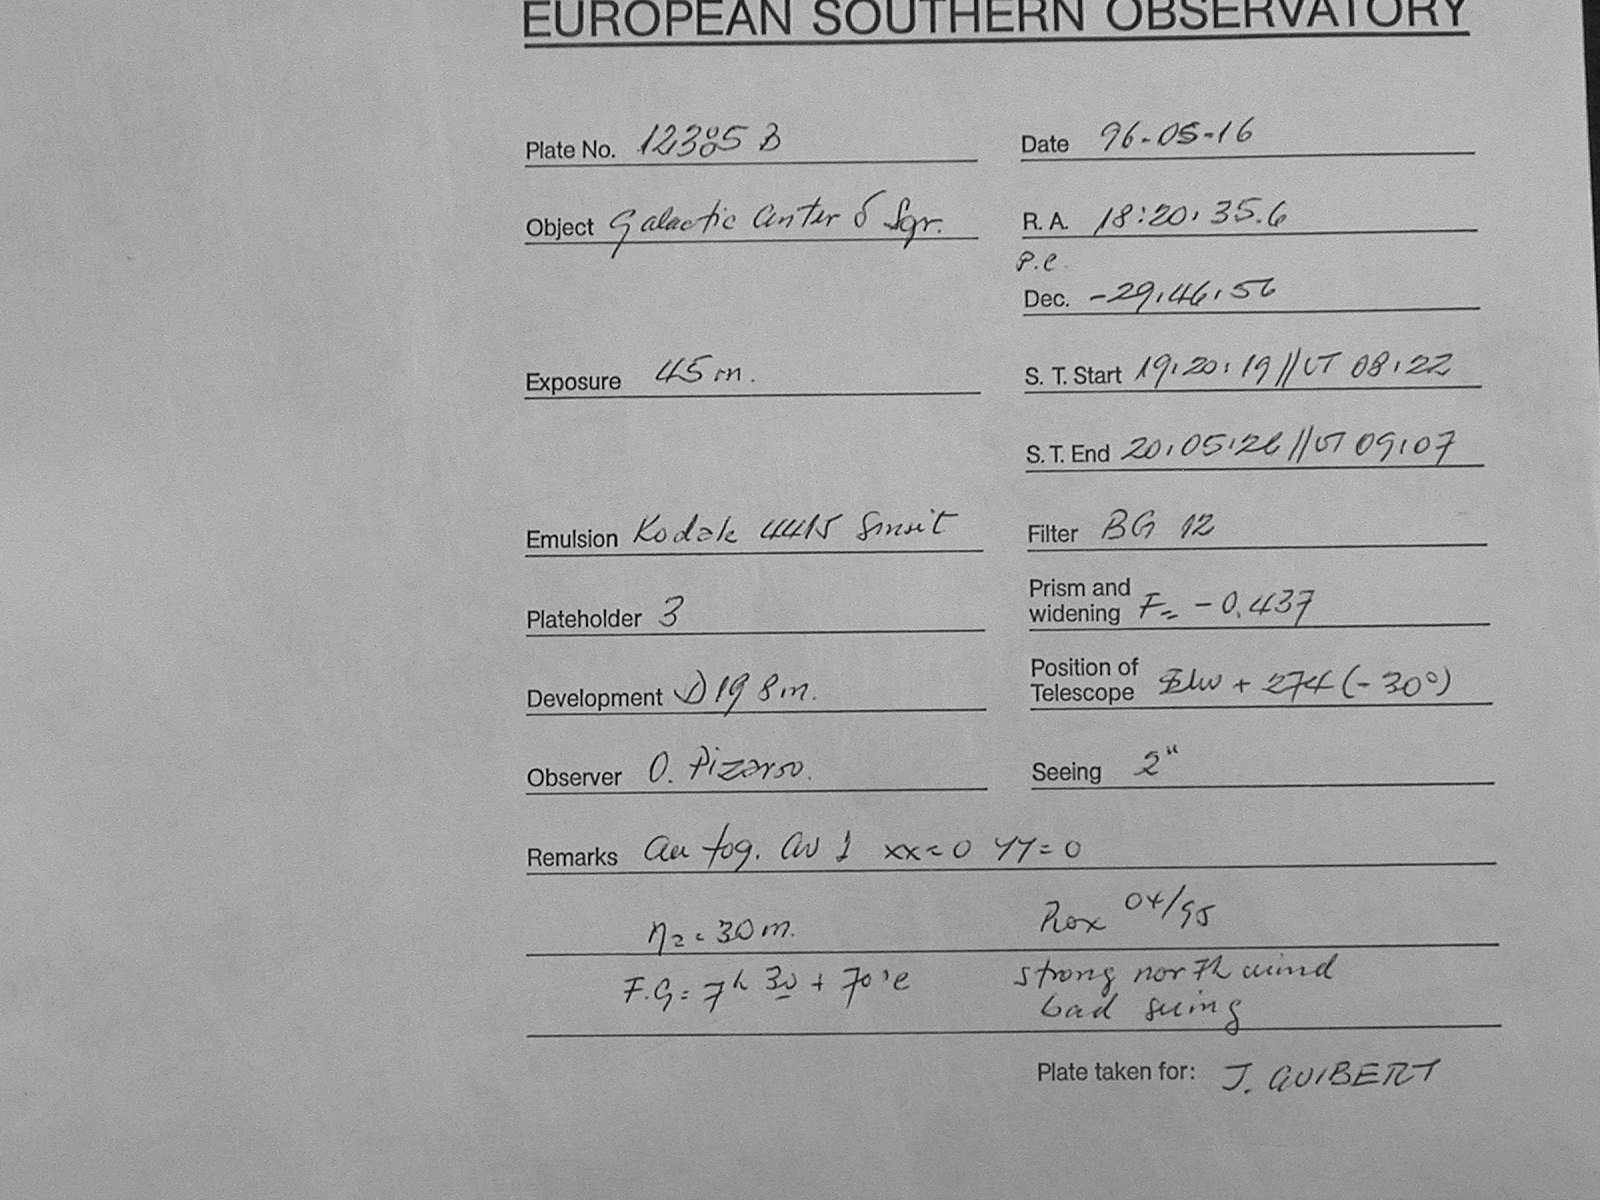 EUROPEAN SOUTHERN OBSERVATORY
Plate No. 12385 B
Date 96-05-16
Object Galactic Center δ Sgr.
R. A. 18:20:35.6
P.e.
Dec. -29:46:56
Exposure 45 m.
S. T. Start 19:20:19 // UT 08:22
S. T. End 20:05:26 // UT 09:07
Emulsion Kodak 4415
Filter BG 12
Plateholder 3
Prism and
widening F= -0.437
Development D19 8m.
Position of
Telescope + 274 (-30°)
Observer O. Pizarro.
Seeing 2"
Remarks xx=0 YY=0
= 30 m.
F.G= 7h 30 + 70'e
strong north wind
bad seeing
Plate taken for: J. GUIBERT